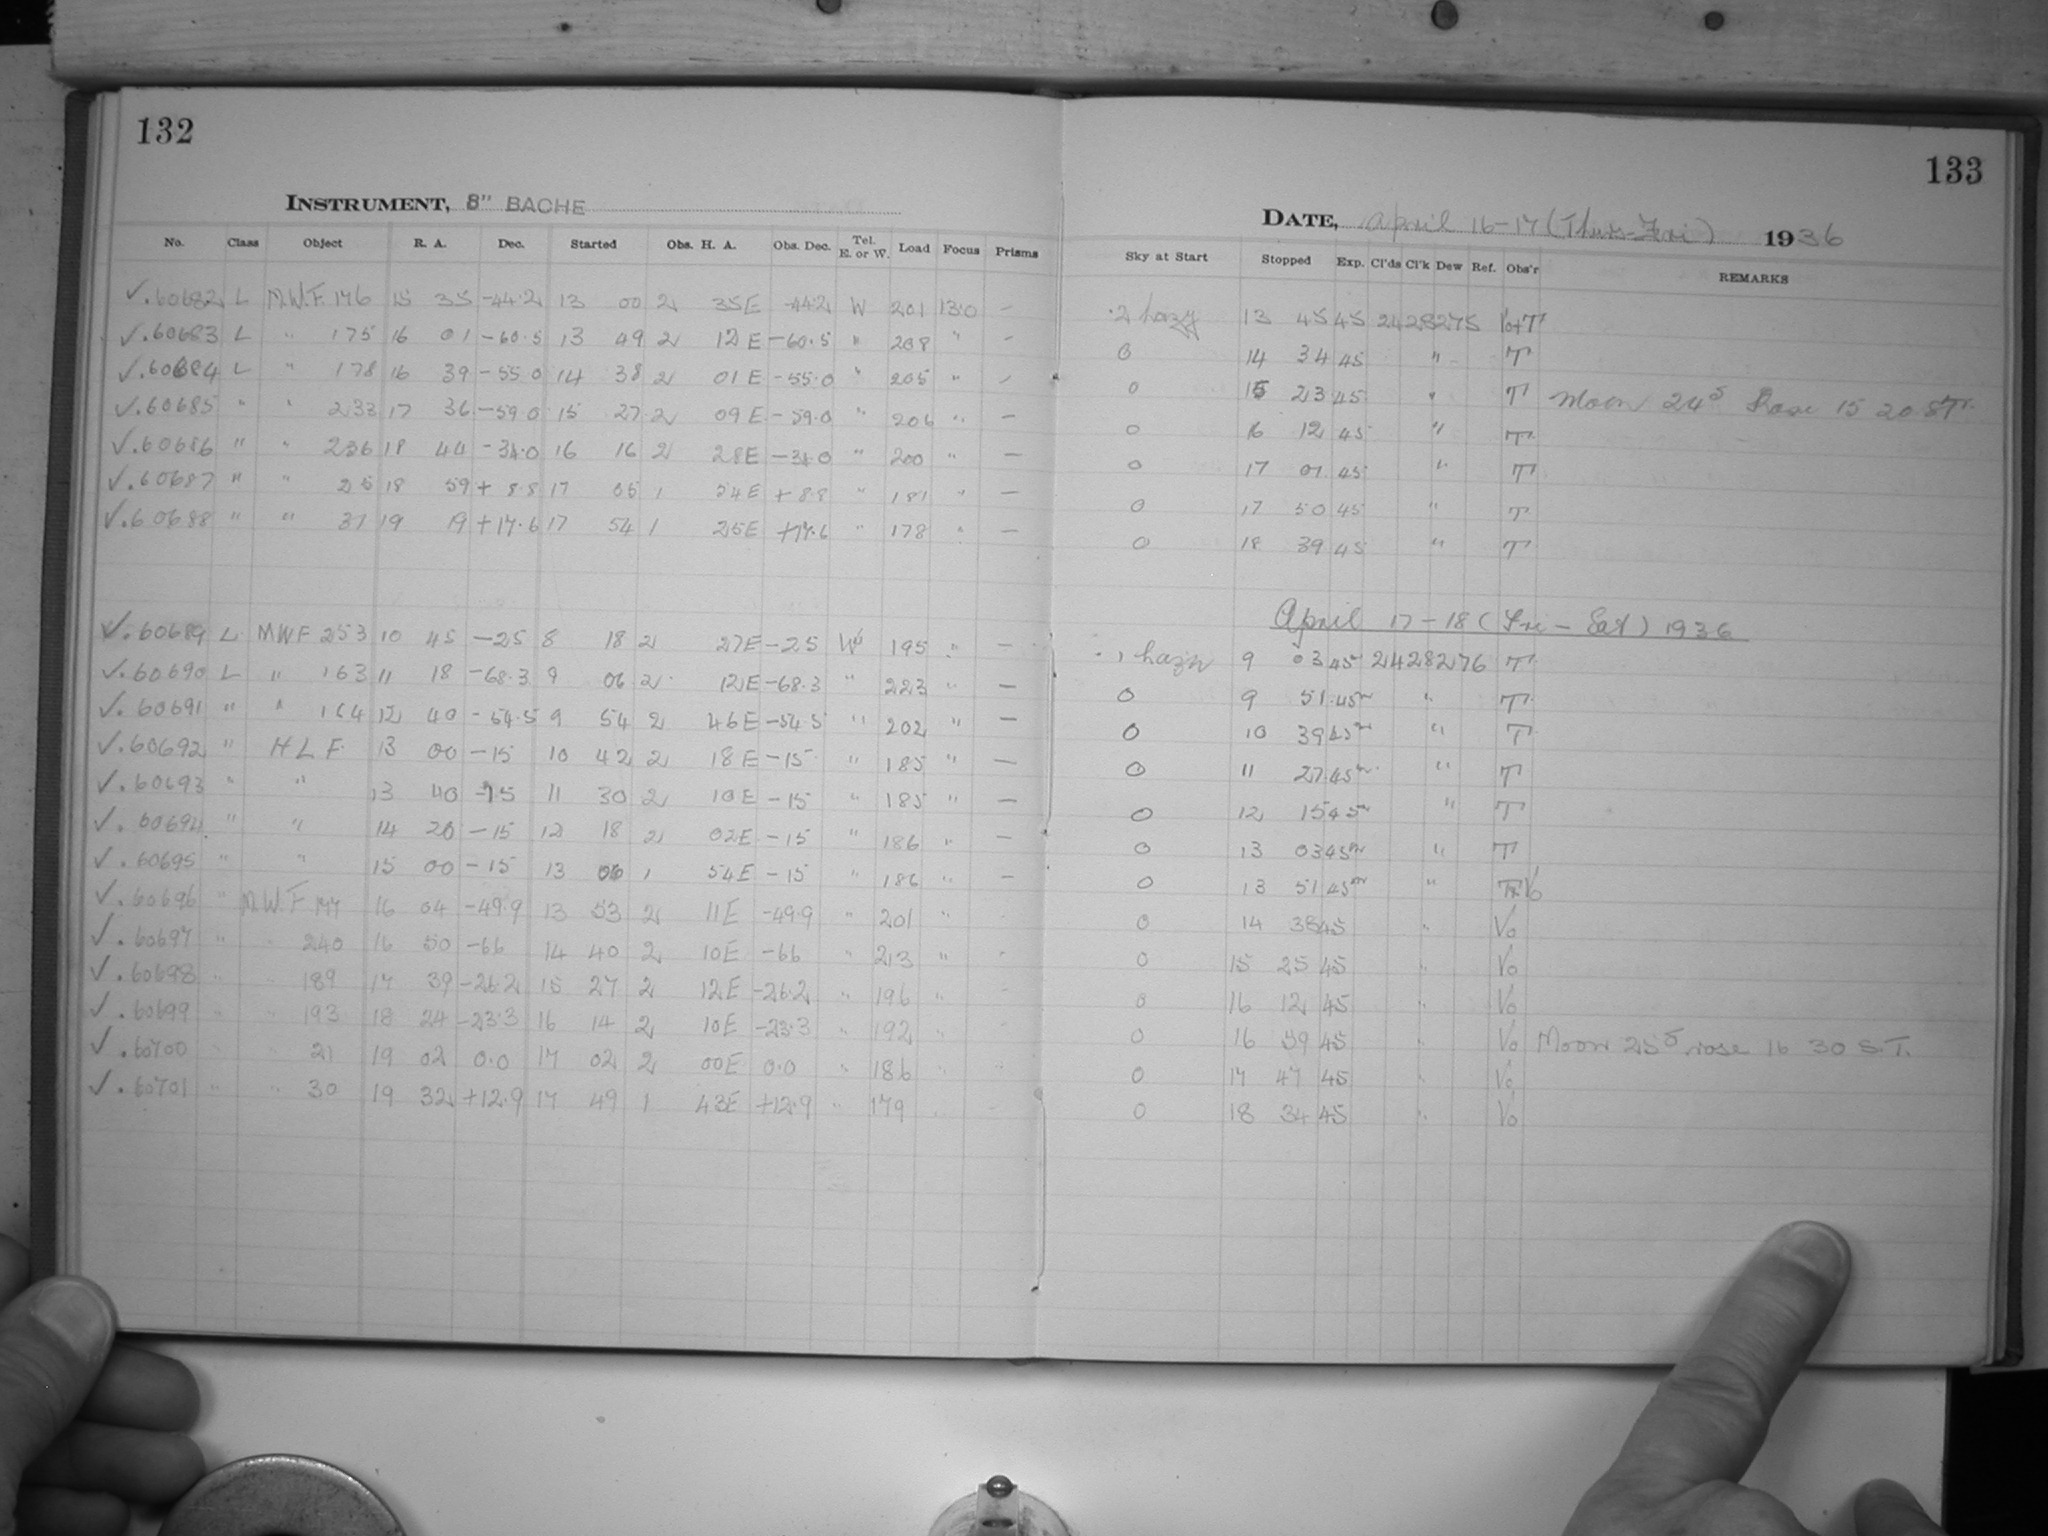 132
INSTRUMENT, 8" BACHE
No. Class Object R. A. Dec. Started Obs. H. A. Obs. Dec. Tel. E. or W. Load Focus Prisms
✓.60682 L M.W.F. 176 15 35 -44.2 13 00 2 35E -44.2 W 201 13.0 -
✓.60683 L " 175 16 01 -60.5 13 49 2 12E -60.5 " 208 " -
✓.60684 L " 178 16 39 -55.0 14 38 2 01E -55.0 " 205 " -
✓.60685 " " 233 17 36 -59.0 15 27 2 09E -59.0 " 206 " -
✓.60686 " " 236 18 44 -34.0 16 16 2 28E -34.0 " 200 " -
✓.60687 " " 25 18 59 +8.8 17 05 1 54E +8.8 " 181 " -
✓.60688 " " 31 19 19 +17.6 17 54 1 25E +17.6 " 178 " -
✓.60689 L MWF 253 10 45 -25 8 18 2 27E -25 W 195 " -
✓.60690 L " 163 11 18 -68.3 9 06 2 12E -68.3 " 223 " -
✓.60691 " " 164 12 40 -54.5 9 54 2 46E -54.5 " 202 " -
✓.60692 " H L F. 13 00 -15 10 42 2 18E -15 " 185 " -
✓.60693 " " 13 40 -15 11 30 2 10E -15 " 185 " -
✓.60694 " " 14 20 -15 12 18 2 02E -15 " 186 " -
✓.60695 " " 15 00 -15 13 06 1 54E -15 " 186 " -
✓.60696 " M.W.F 177 16 04 -49.9 13 53 2 11E -49.9 " 201 "
✓.60697 " " 240 16 50 -66 14 40 2 10E -66 " 213 " "
✓.60698 " " 189 17 39 -26.2 15 27 2 12E -26.2 " 196 " "
✓.60699 " " 193 18 24 -23.3 16 14 2 10E -23.3 " 192 "
✓.60700 " " 21 19 02 0.0 17 02 2 00E 0.0 " 186 " "
✓.60701 " " 30 19 32 +12.9 17 49 1 43E +12.9 " 179
133
DATE, April 16-17 (Thurs-Fri) 1936
Sky at Start Stopped Exp. Cl'ds Cl'k Dew Ref. Obs'r REMARKS
.2 hazy 13 45 45 2428275 Vo+T
0 14 34 45 " T
0 15 23 45 " T Moon 24⁵ rose 15 20 ST.
0 16 12 45 " T
0 17 01 45 " T
0 17 50 45 " T
0 18 39 45 " T
April 17-18 (Fri-Sat) 1936
.1 hazy 9 03 45m 2428276 T
0 9 51 45m " T
0 10 39 45m " T
0 11 27 45m " T
0 12 15 45m " T
0 13 03 45m " T
0 13 51 45m " T+Vo
0 14 38 45 " Vo
0 15 25 45 " Vo
0 16 12 45 " Vo
0 16 59 45 Vo Moon 25⁵ rose 16 30 S.T.
0 17 47 45 " Vo
0 18 34 45 " Vo